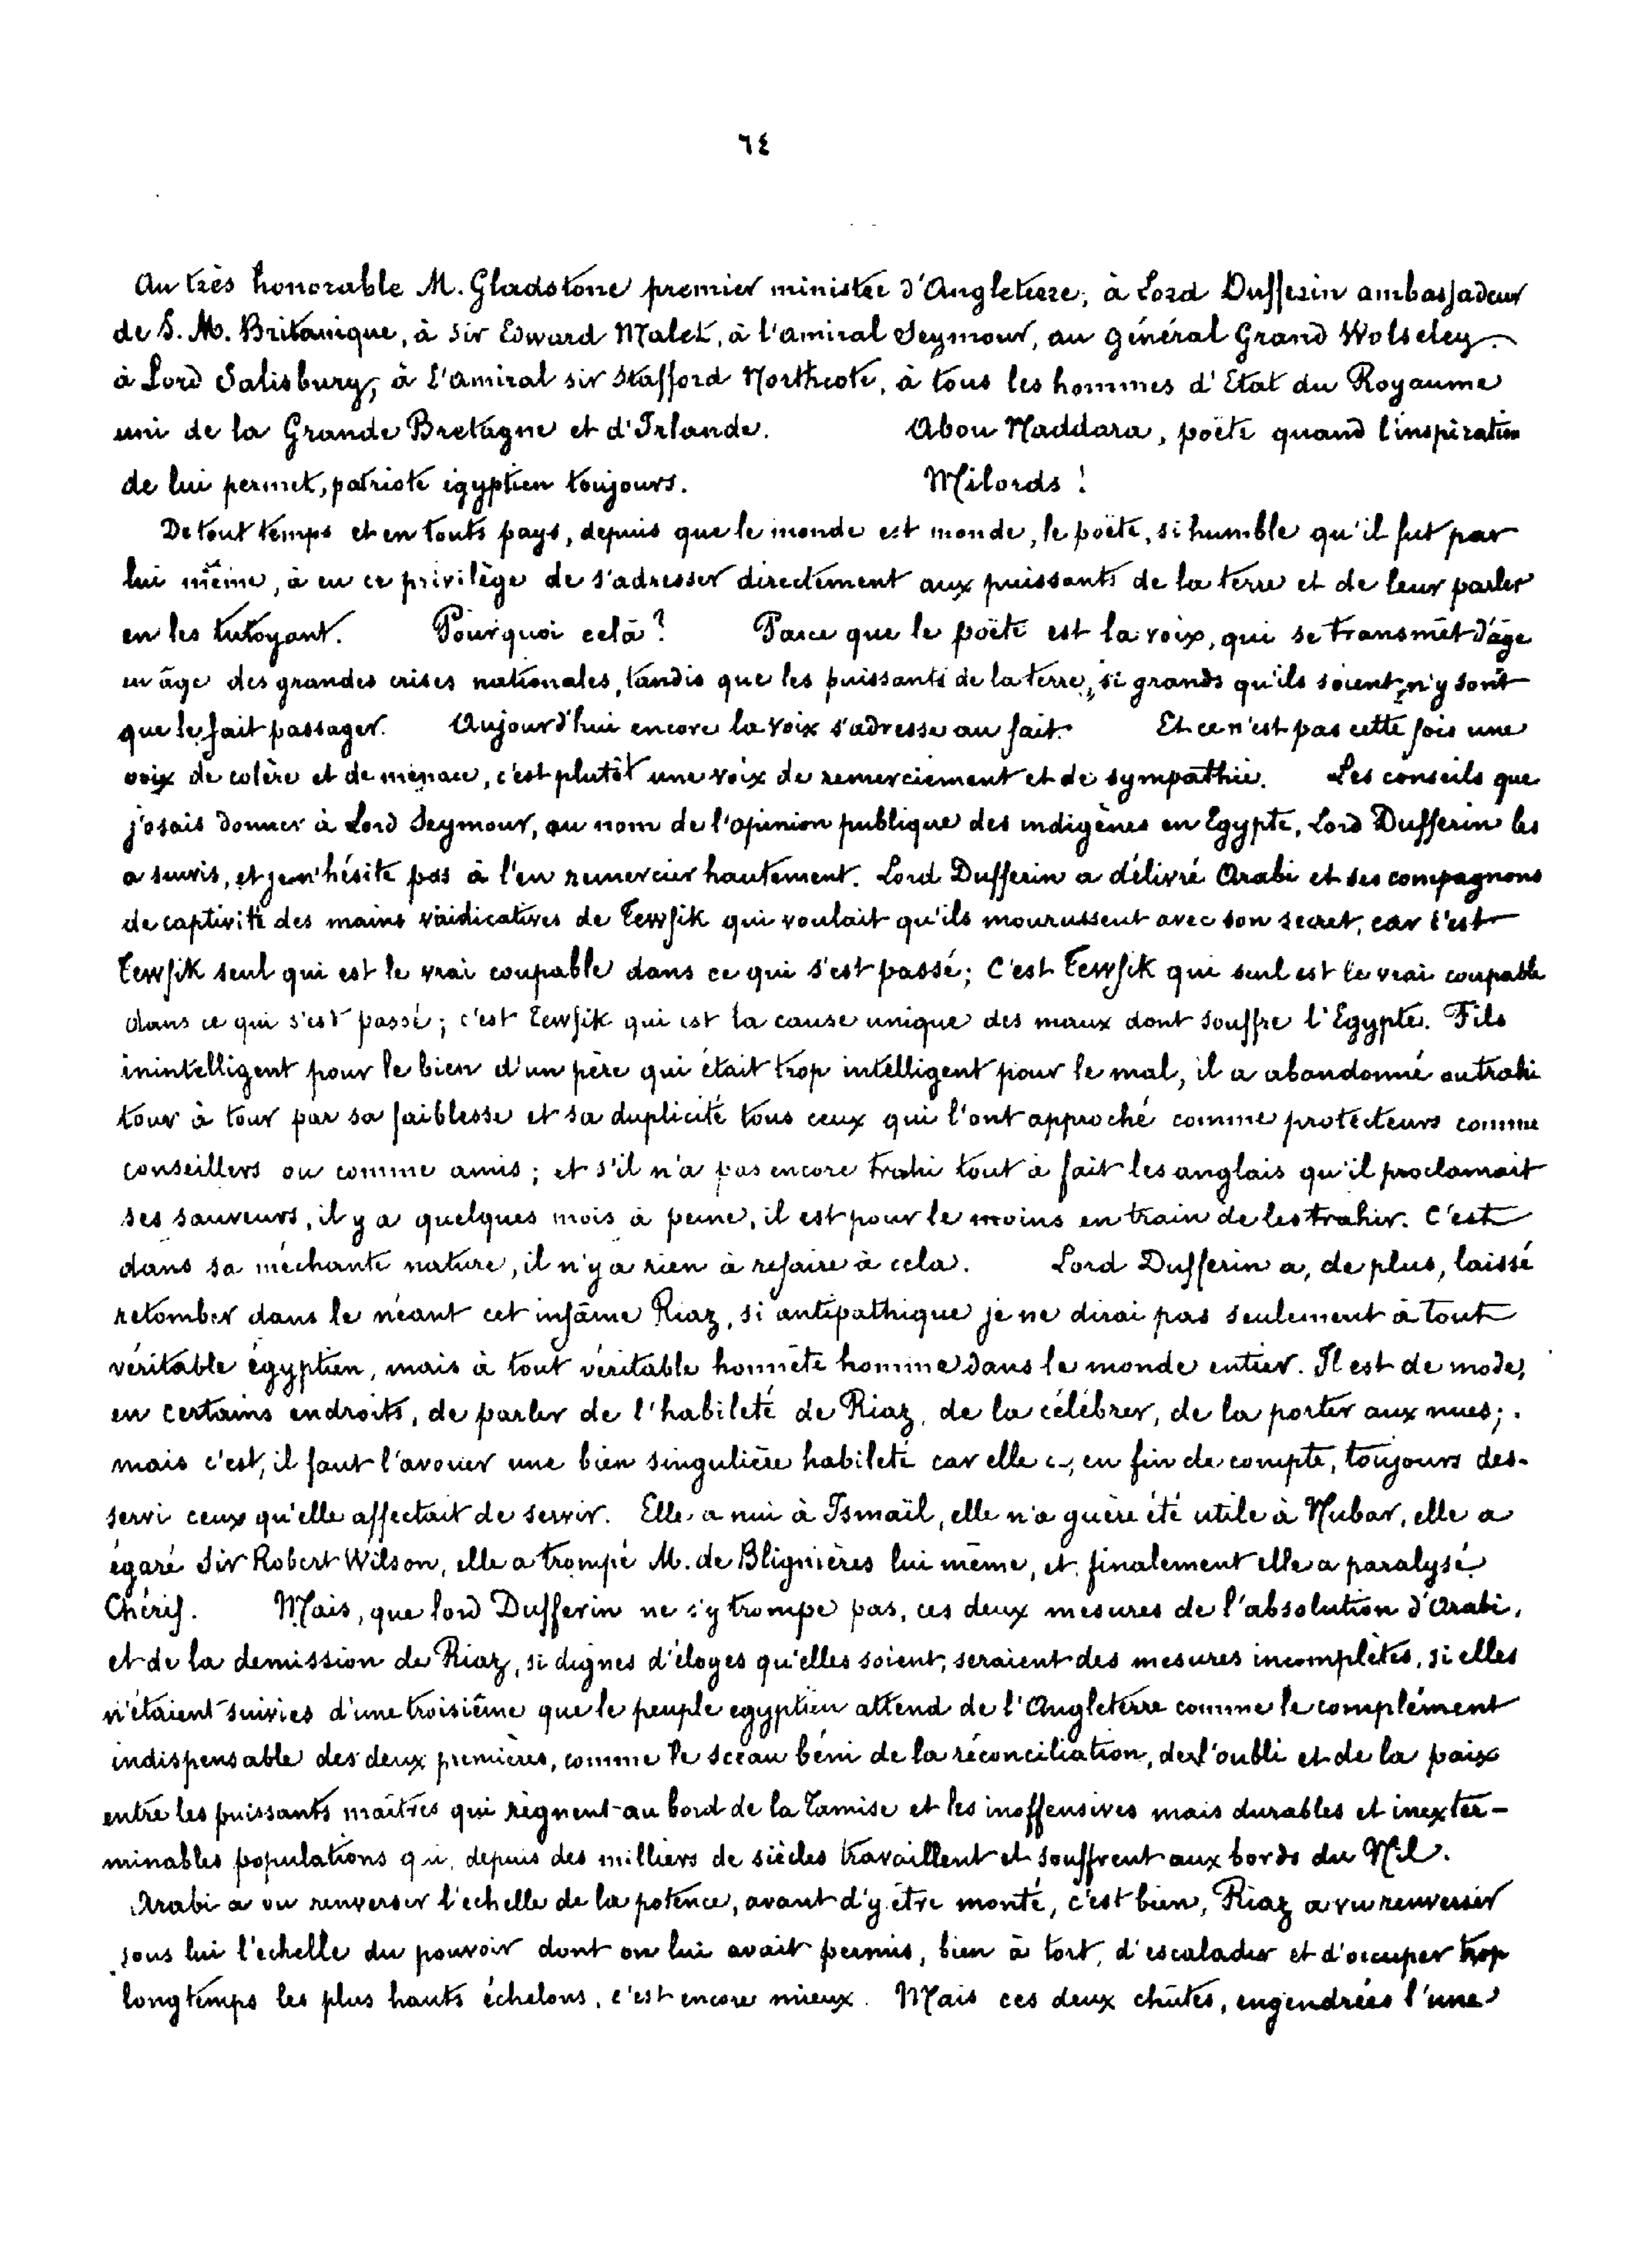 ٦٤
Au très honorable M. Gladstone premier ministre d'Angleterre, à Lord Dufferin ambassadeur
de S. M. Britanique, à Sir Edward Malet, à l'amiral Seymour, au général Grand Wolseley
à Lord Salisbury, à l'amiral sir Stafford Northcote, à tous les hommes d'Etat du Royaume
uni de la Grande Bretagne et d'Irlande. Abou Naddara, poëte quand l'inspiration
de lui permet, patriote égyptien toujours. Milords!
De tout temps et en touts pays, depuis que le monde est monde, le poëte, si humble qu'il fut par
lui même, à eu ce privilège de s'adresser directement aux puissants de la terre et de leur parler
en les tutoyant. Pourquoi celà? Parce que le poëte est la voix, qui se transmet d'âge
en âge des grandes crises nationales, tandis que les puissants de la terre, si grands qu'ils soient, n'y sont
que le fait passager. Aujourd'hui encore la voix s'adresse au fait. Et ce n'est pas cette fois une
voix de colère et de menace, c'est plutôt une voix de remerciement et de sympathie. Les conseils que
j'osais donner à Lord Seymour, au nom de l'opinion publique des indigènes en Egypte, Lord Dufferin les
a suivis, et je n'hésite pas à l'en remercier hautement. Lord Dufferin a délivré Arabi et ses compagnons
de captivité des mains vindicatives de Tewfik qui voulait qu'ils mourussent avec son secret, car c'est
Tewfik seul qui est le vrai coupable dans ce qui s'est passé; C'est Tewfik qui seul est le vrai coupable
dans ce qui s'est passé; c'est Tewfik qui est la cause unique des maux dont souffre l'Egypte. Fils
inintelligent pour le bien d'un père qui était trop intelligent pour le mal, il a abandonné ou trahi
tour à tour par sa faiblesse et sa duplicité tous ceux qui l'ont approché comme protecteurs comme
conseillers ou comme amis; et s'il n'a pas encore trahi tout à fait les anglais qu'il proclamait
ses sauveurs, il y a quelques mois à peine, il est pour le moins en train de les trahir. C'est
dans sa méchante nature, il n'y a rien à refaire à cela. Lord Dufferin a, de plus, laissé
retomber dans le néant cet infâme Riaz, si antipathique je ne dirai pas seulement à tout
véritable égyptien, mais à tout véritable honnête homme dans le monde entier. Il est de mode,
en certains endroits, de parler de l'habileté de Riaz, de la célébrer, de la porter aux nues;
mais c'est, il faut l'avouer une bien singulière habileté car elle a, en fin de compte, toujours des-
servi ceux qu'elle affectait de servir. Elle a nui à Ismaïl, elle n'a guère été utile à Nubar, elle a
égaré Sir Robert Wilson, elle a trompé M. de Blignières lui même, et finalement elle a paralysé
Chérif. Mais, que lord Dufferin ne s'y trompe pas, ces deux mesures de l'absolution d'Arabi,
et de la demission de Riaz, si dignes d'éloges qu'elles soient, seraient des mesures incomplètes, si elles
n'étaient suivies d'une troisième que le peuple egyptien attend de l'Angleterre comme le complément
indispensable des deux premières, comme le sceau béni de la réconciliation, de l'oubli et de la paix
entre les puissants maîtres qui règnent au bord de la Tamise et les inoffensives mais durables et inexter-
minables populations qui, depuis des milliers de siècles travaillent et souffrent aux bords du Nil.
Arabi a vu renverser l'echelle de la potence, avant d'y être monté, c'est bien, Riaz a vu renverser
sous lui l'echelle du pouvoir dont on lui avait permis, bien à tort, d'escalader et d'occuper trop
longtemps les plus hauts échelons, c'est encore mieux. Mais ces deux chûtes, engendrées l'une